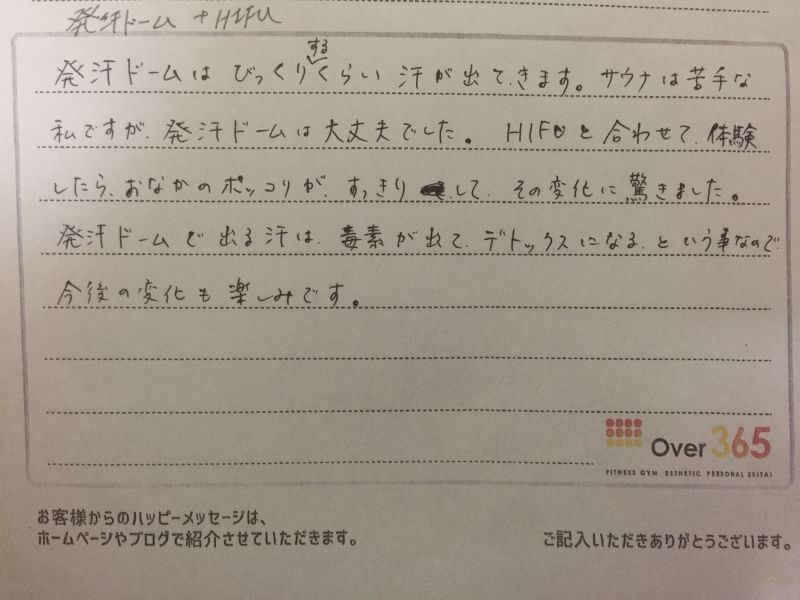 発汗ドーム + HIFU
発汗ドームは びっくりするくらい 汗が出てきます。サウナは苦手な
私ですが、発汗ドームは大丈夫でした。HIFUと合わせて、体験
したら、おなかのポッコリが、すっきりして、その変化に驚きました。
発汗ドームで出る汗は、毒素が出て、デトックスになる、という事なので
今後の変化も楽しみです。
Over 365
FITNESS GYM ESTHETIC PERSONAL SEITAI
お客様からのハッピーメッセージは、
ホームページやブログで紹介させていただきます。
ご記入いただきありがとうございます。